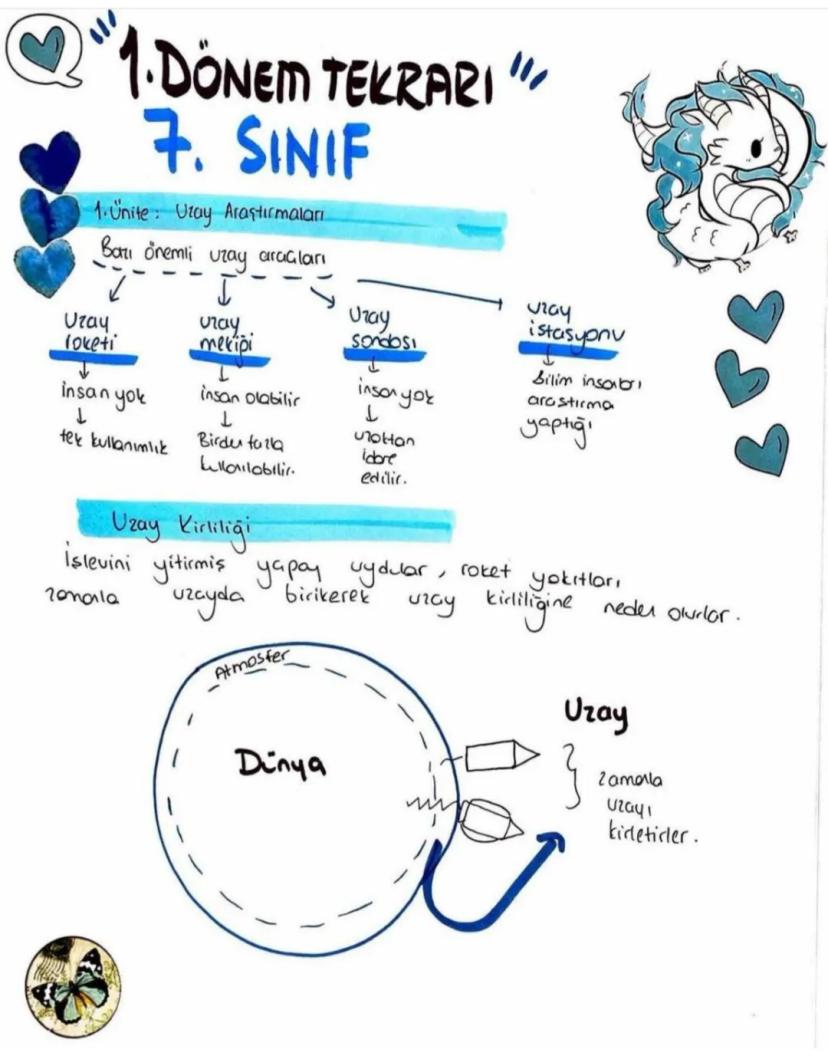 1.DÖNEM TEKRARI
7. SINIF
1.Ünite: Uzay Araştırmaları
Bazı önemli uzay araçları
Uzay roketi
insan yok
tek kullanımlık
uzay mekiği
insan olabilir
Birden fazla
kullanılabilir.
Uzay sondası
insan yok
uzaktan
idare
edilir.
uzay istasyonu
Bilim insanları
araştırma
yaptığı
Uzay Kirliliği
İşlevini yitirmiş yapay uydular, roket yakıtları
zamanla uzayda birikerek uzay kirliliğine neden olurlar.
Atmosfer
Dünya
Uzay
zamanla
uzayı
kirletirler.